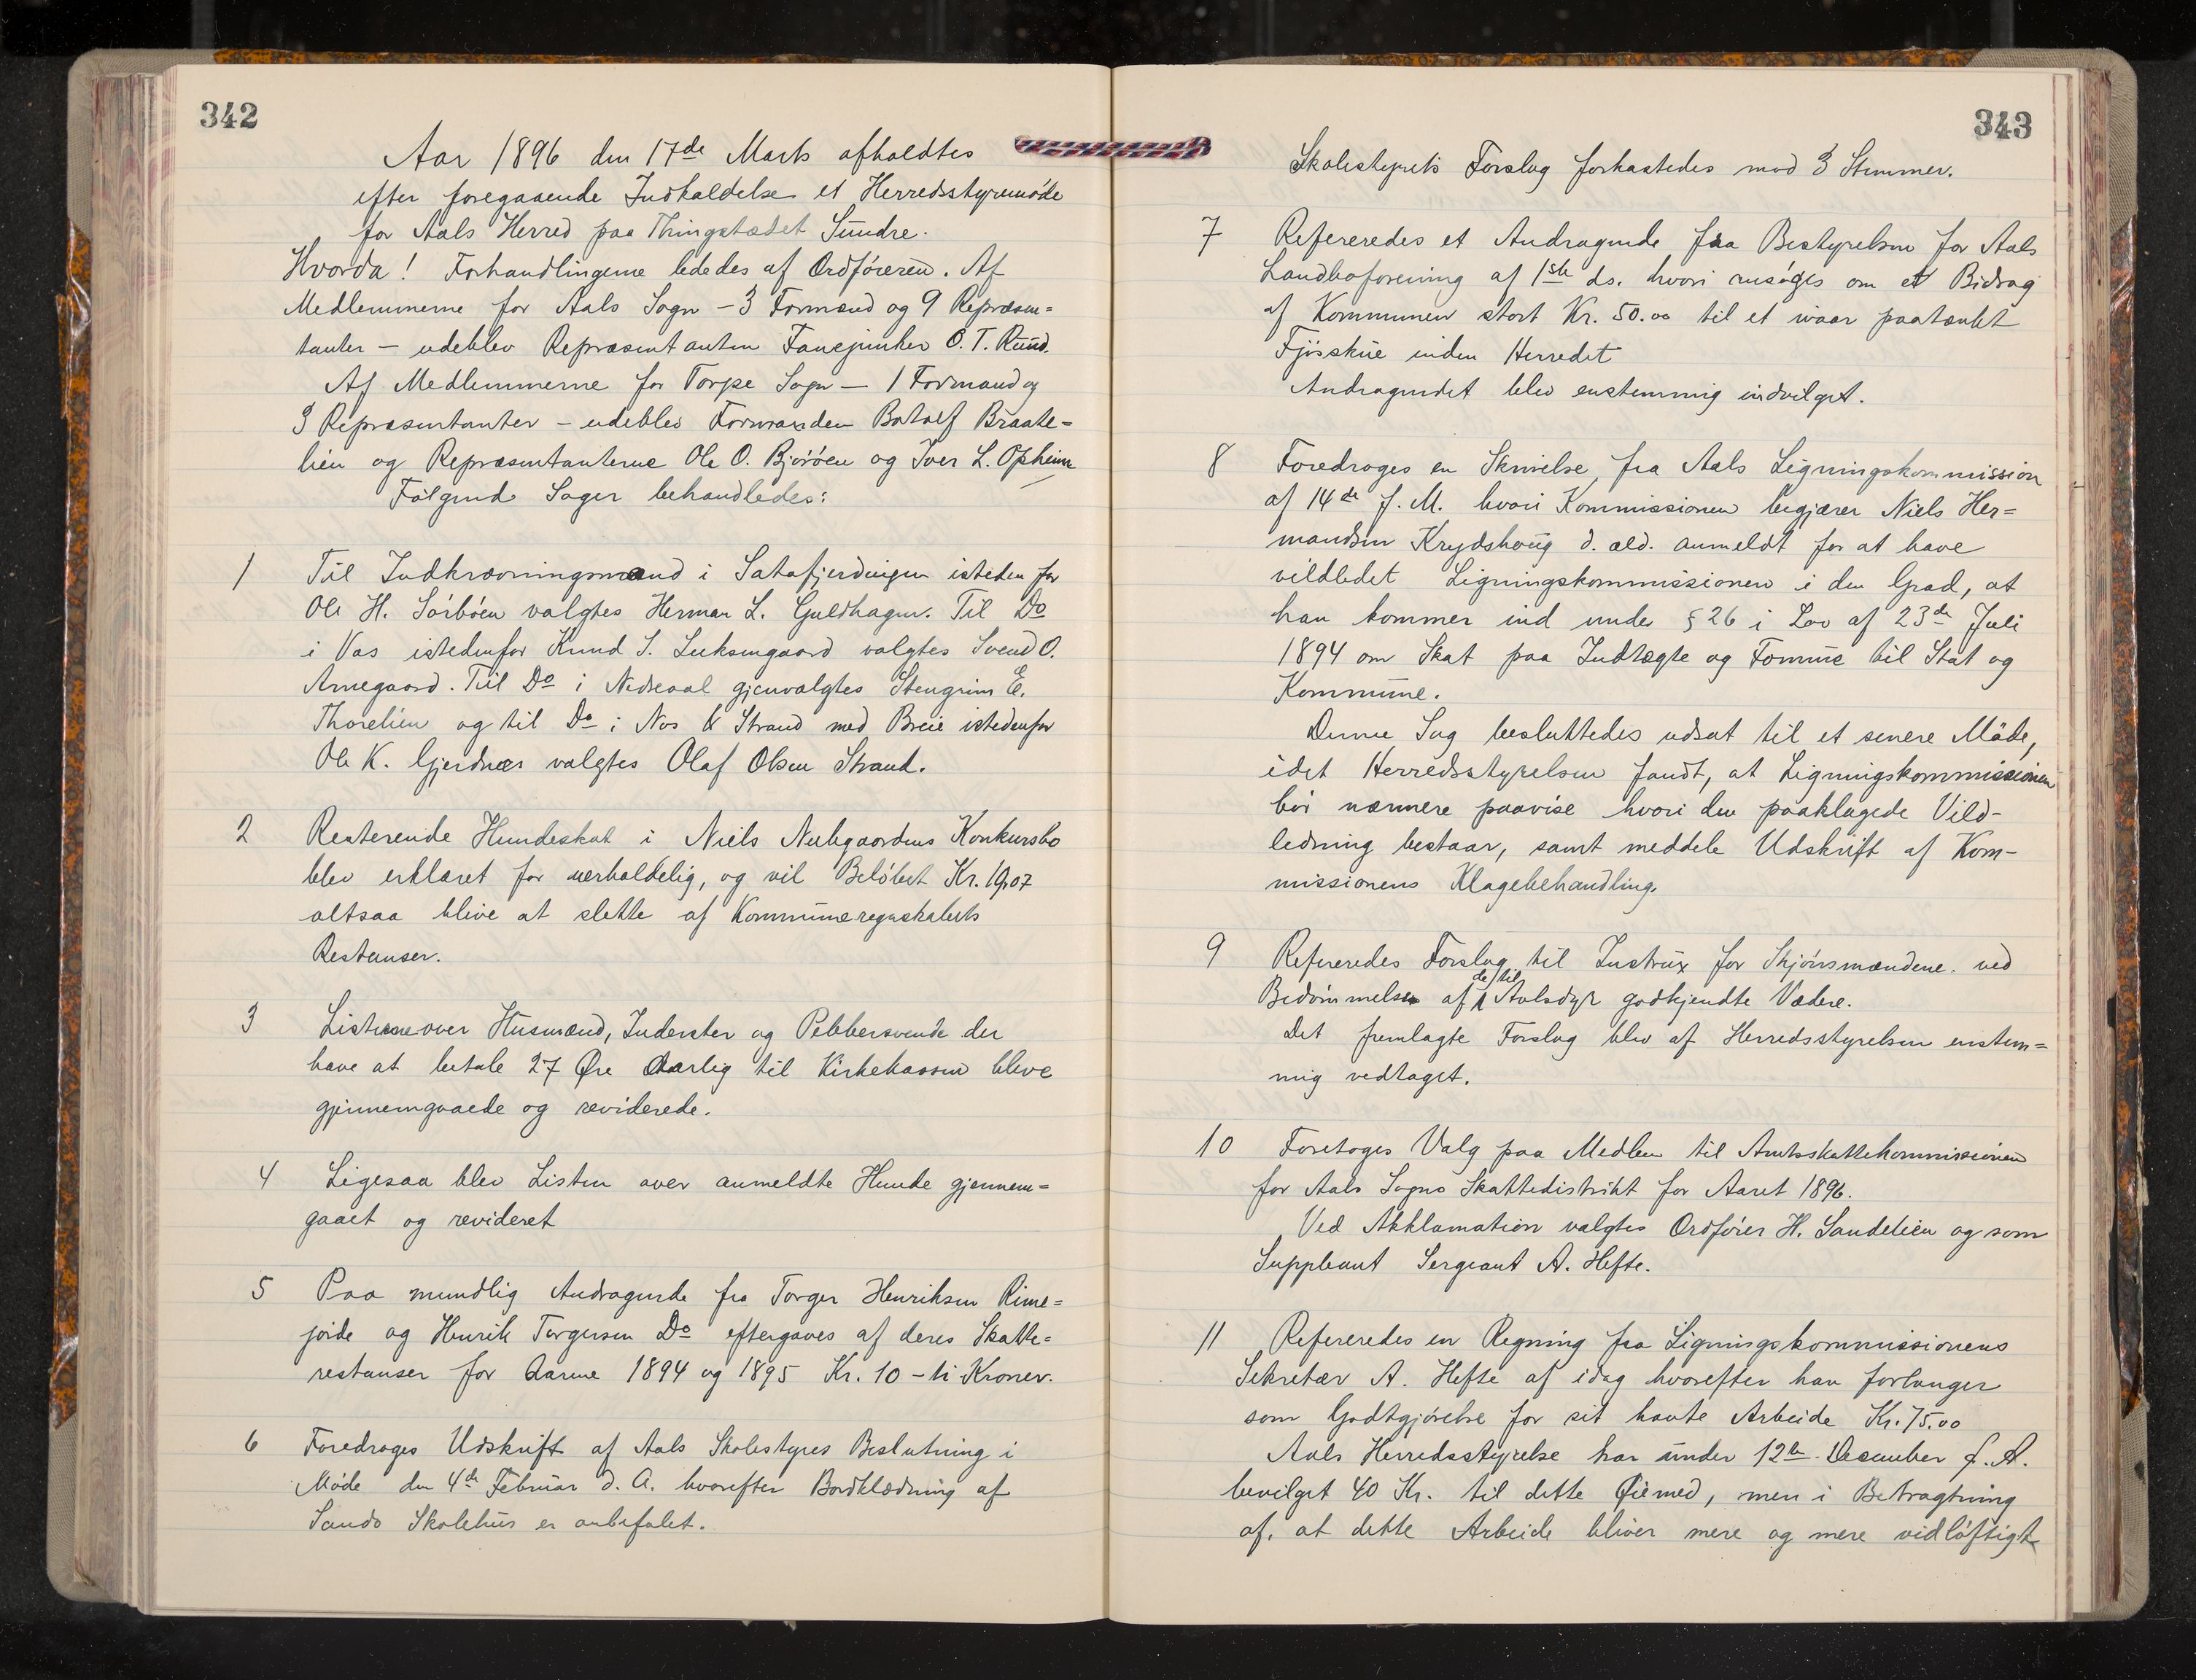 342
Aar 1896 den 17de Marts afholdtes
efter foregaaende Indkaldelse et Herredsstyremøde
for Aals Herred paa Thingstedet Sundre.
Hvorda! Forhandlingerne lededes af Ordføreren. Af
Medlemmerne for Aals Sogn – 3 Formænd og 9 Repræsen=
tanter – udeblev Repræsentanten Fanejunker O. T. Ruud.
Af Medlemmerne for Torpe Sogn – 1 Formand og
3 Repræsentanter – udeblev Formanden Botolf Braate=
lien og Repræsentanterne Ole O. Bjøröen og Iver L. Opheim
Følgende Sager behandledes:
1 Til Indkrævningsmænd i Satafjerdingen isteden for
Ole H. Sørbøen valgtes Herman L. Guldhagen. Til Do
i Vas istedenfor Knud S. Leksengaard valgtes Svend O.
Arnegaard. Til Do i Nedreaal gjenvalgtes Stengrim E.
Thorelien og til Do i Nos & Strand med Breie istedenfor
Ole K. Gjerdnæs valgtes Olaf Olsen Strand.
2 Resterende Hundeskat i Niels Nubgaardens Konkursbo
blev erklæret for uerholdelig, og vil Beløbet Kr. 19,07
altsaa blive at slette af Kommuneregnskabets
Restanser.
3 Listerne over Husmænd, Inderster og Pebbersvende der
have at betale 27 Øre Aarlig til Kirkekassen bleve
gjennemgaaede og reviderede.
4 Ligesaa blev Listen over anmeldte Hunde gjennem=
gaaet og revideret
5 Paa mundlig Andragende fra Torger Henriksen Rime=
jorde og Henrik Torgersen Do eftergaves af deres Skatte=
restanser for Aarene 1894 og 1895 Kr. 10 – ti Kroner.
6 Foredroges Udskrift af Aals Skolestyres Beslutning i
Møde den 4de Februar d. A. hvorefter Bordklædning af
Sando Skolehus er anbefalet.
343
Skolestyrets Forslag forkastedes mod 3 Stemmer.
7 Refereredes et Andragende fra Bestyrelsen for Aals
Landboforening af 1ste ds. hvori ansøges om et Bidrag
af Kommunen stort Kr. 50.00 til et iaar paatænkt
Fjøsskue inden Herredet
Andragendet blev enstemmig indvilget.
8 Foredroges en Skrivelse fra Aals Ligningskommission
af 14de f. M. hvori Kommissionen begjærer Niels Her=
mandsen Krydshoug d. æld. anmeldt for at have
vildledet Ligningskommissionen i den Grad, at
han kommer ind under § 26 i Lov af 23de Juli
1894 om Skat paa Indtægte og Formue til Stat og
Kommune.
Denne Sag besluttedes udsat til et senere Møde,
idet Herredsstyrelsen fandt, at Ligningskommissionen
bør nærmere paavise hvori den paaklagede Vild-
ledning bestaar, samt meddele Udskrift af Kom-
missionens Klagebehandling.
9 Refereredes Forslag til Instrux for Skjønsmændene ved
Bedømmelsen af de til Avlsdyr godkjendte Vædere.
Det fremlagte Forslag blev af Herredsstyrelsen enstem=
mig vedtaget.
10 Foretoges Valg paa Medlem til Amtsskattekommissionen
for Aals Sogns Skattedistrikt for Aaret 1896.
Ved Akklamation valgtes Ordfører H. Sandelien og som
Suppleant Sergeant A. Hefte.
11 Refereredes en Regning fra Ligningskommissionens
Sekretær A. Hefte af idag hvorefter han forlanger
som Godtgjørelse for sit havte Arbeide Kr. 75.00
Aals Herredsstyrelse har under 12te December f. A.
bevilget 40 Kr. til dette Øiemed, men i Betragtning
af, at dette Arbeide bliver mere og mere vidløftigt